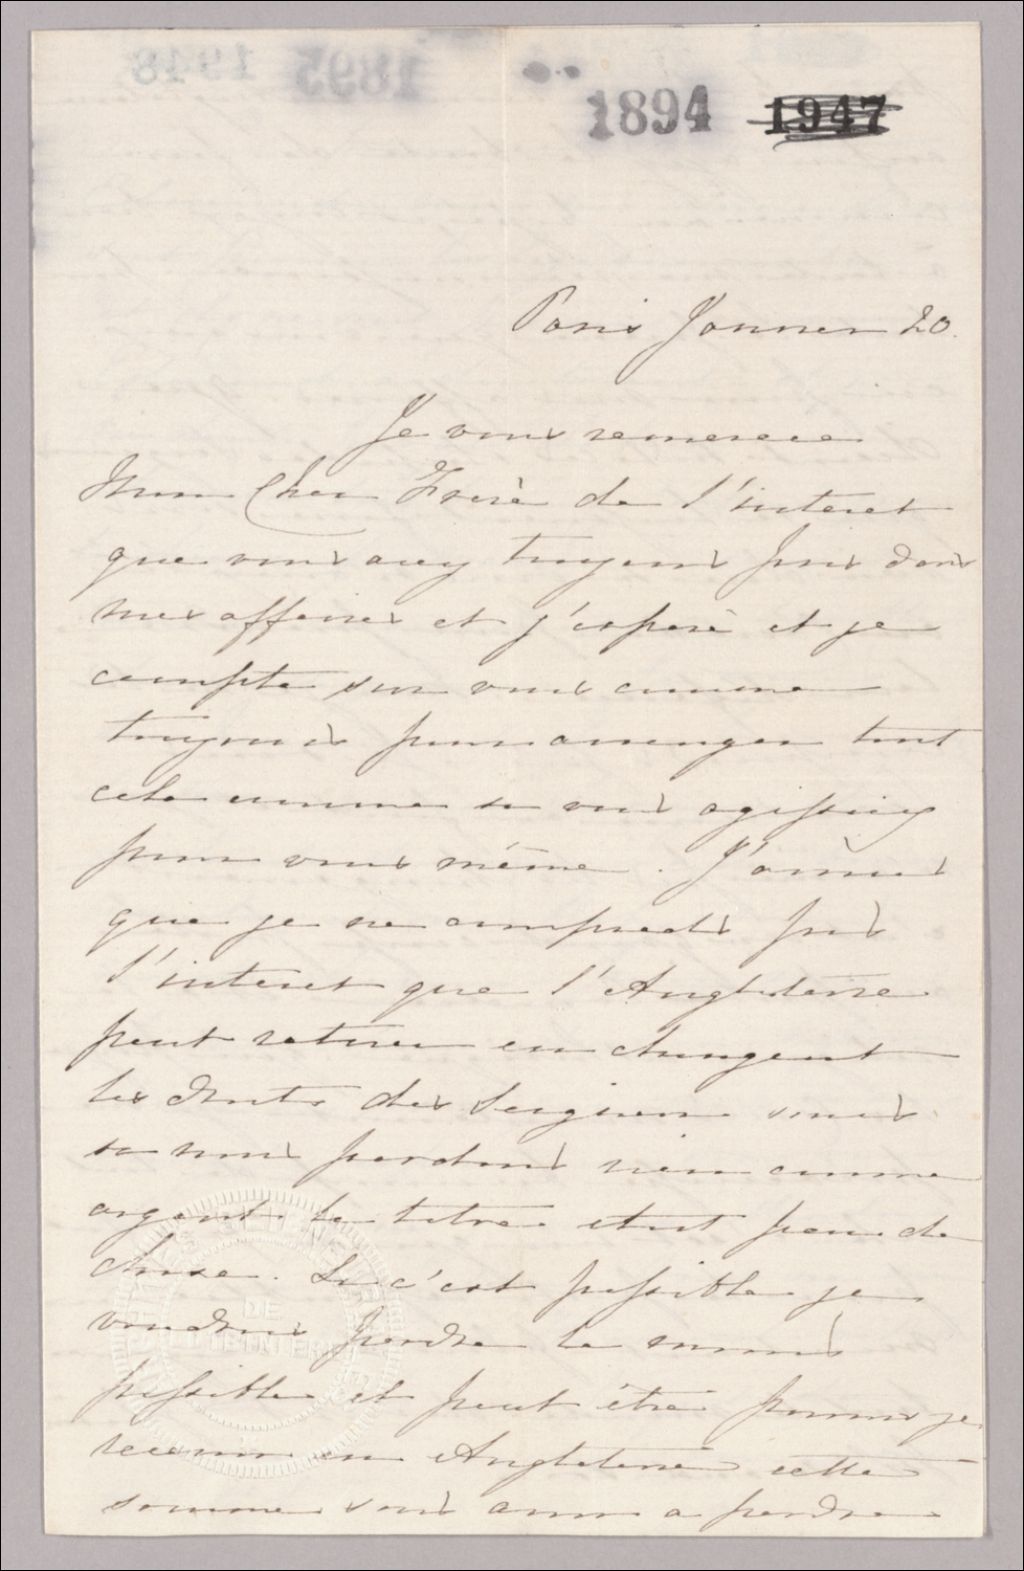 1894 1947
Paris Janvier 20.
Je vous remercie
Mon Cher Frère de l'interet
que vous avez toujours pris dans
mes affaires et j'espere et je
compte sur vous comme
toujours pour arranger tout
cela comme si vous agissiez
pour vous même. J'avoue
que je ne comprends pas
l'interet que l'Angleterre
peut retirer en changeant
les droits des Seigneurs
si nous perdons rien comme
argent le titre etait peu de
chose. Si c'est possible je
voudrais perdre le moins
possible et peut être pourrais je
recevoir en Angleterre cette
somme sans avoir a perdre